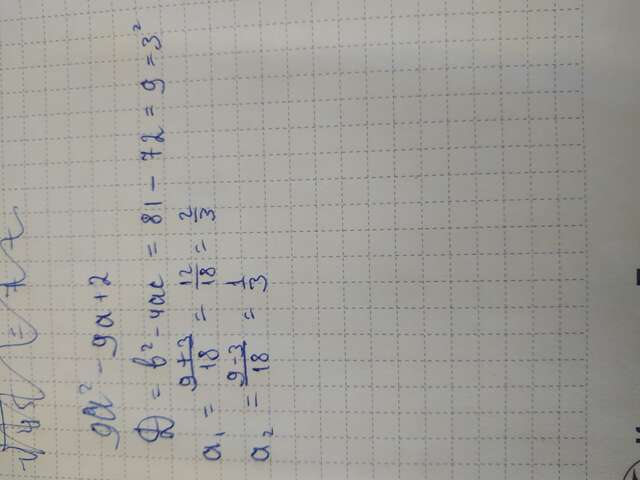 9a² - 9a + 2
D = b² - 4ac = 81 - 72 = 9 = 3²
a₁ = 9+3/18 = 12/18 = 2/3
a₂ = 9-3/18 = 1/3